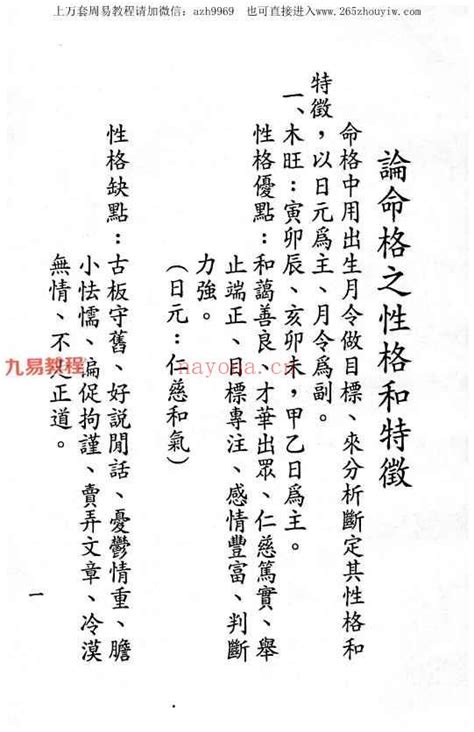 上万套周易教程请加微信：azh9969 也可直接进入www.265zhouyiw.com
論命格之性格和特徵
命格中用出生月令做目標、來分析斷定其性格和
特徵，以日元爲主、月令爲副。
一、木旺：寅卯辰、亥卯未，甲乙日爲主。
性格優點：和藹善良、才華出眾、仁慈篤實、舉
止端正、目標專注、感情豐富、判斷
力強。
（日元：仁慈和氣）
性格缺點：古板守舊、好説閒話、憂鬱情重、膽
小怯懦、偏促拘謹、賣弄文章、冷漠
無情、不 正道。
一
九易教程
nayona.cn